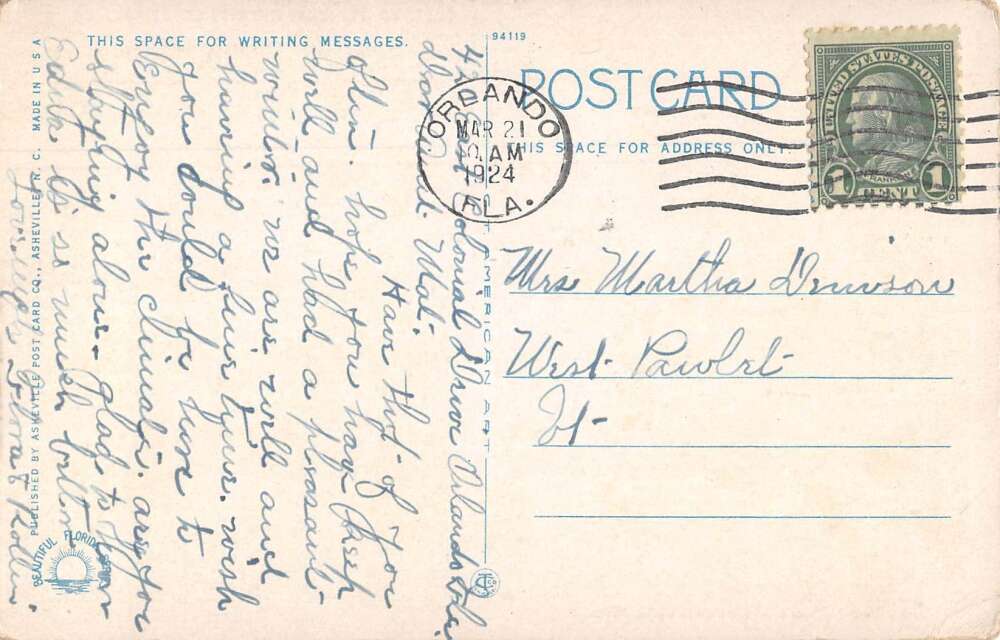 THIS SPACE FOR WRITING MESSAGES.
94119
POST CARD
THIS SPACE FOR ADDRESS ONLY.
ORLANDO
MAR 21
AM
1924
FLA.
UNITED STATES POSTAGE
FRANKLIN
1 CENT 1
Colonial Drive Orlando Fla.
Dear Aunt Mat.
Have tho't of you
often. hope you have kept
well and had a pleasant
winter. we are well and
having a fine time. wish
you could be here to
Enjoy the climate. are you
staying alone. glad to hear
Eddie is so much better
Love
Mrs Martha
West Pawlet
Vt.
AMERICAN ART
PUBLISHED BY ASHEVILLE POST CARD CO., ASHEVILLE, N. C. MADE IN U S A
BEAUTIFUL FLORIDA SERIES